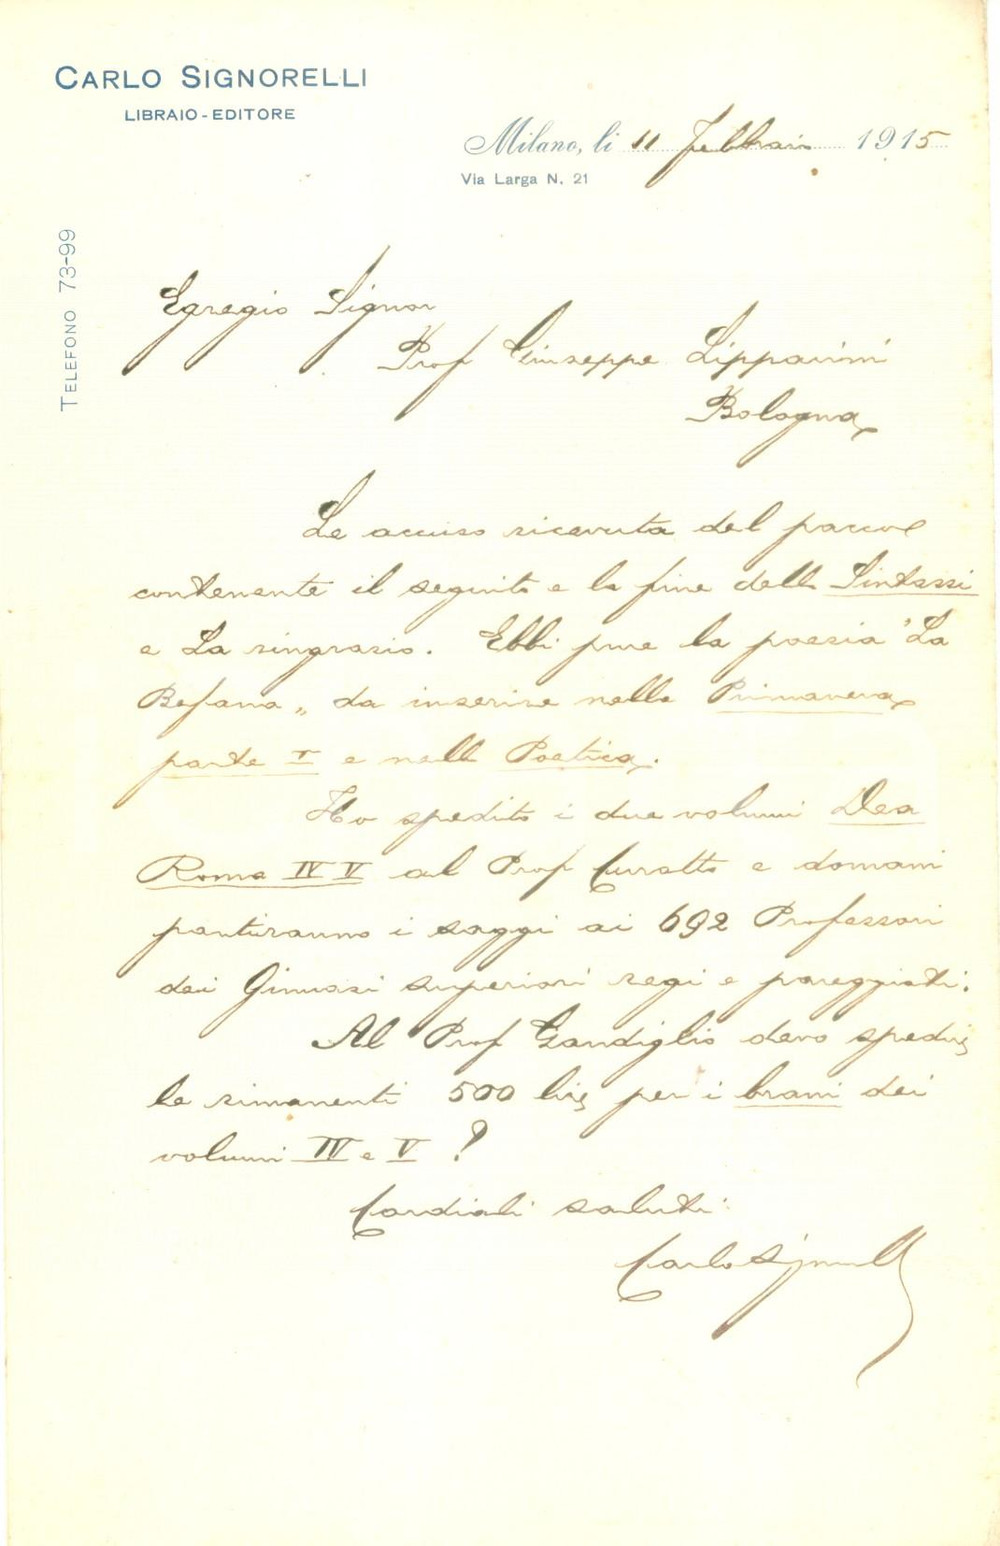 CARLO SIGNORELLI
LIBRAIO-EDITORE
Milano, li 11 Febbraio 1915
Via Larga N. 21
TELEFONO 73-99
Egregio Signor
Prof Giuseppe Lipparini
Bologna
Le accuso ricevuta del pacco
contenente il seguito e la fine della Sintassi
e La ringrazio. Ebbi pure la poesia "La
Befana„ da inserire nella Primavera
parte I e nella Poetica.
Ho spedito i due volumi Dea
Roma IV V al Prof Curatto e domani
partiranno i saggi ai 692 Professori
dei Ginnasi superiori regi e pareggiati.
Al Prof Gandiglio devo spedire
le rimanenti 500 lire per i brani dei
volumi IV e V ?
Cordiali saluti
Carlo Signorelli